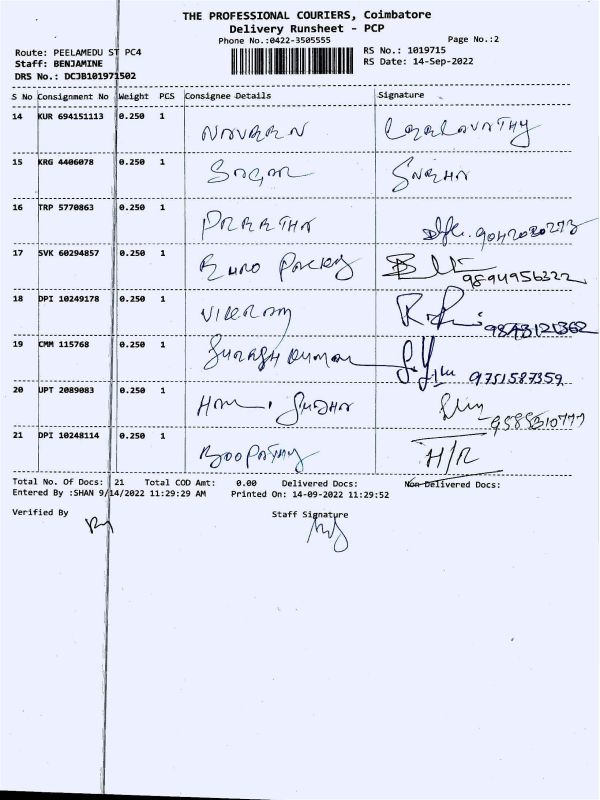 THE PROFESSIONAL COURIERS, Coimbatore
Delivery Runsheet - PCP
Phone No.:0422-3505555 Page No.:2
Route: PEELAMEDU ST PC4 RS No.: 1019715
Staff: BENJAMINE RS Date: 14-Sep-2022
DRS No.: DCJB101971502
S No Consignment No Weight PCS Consignee Details Signature
14 KUR 694151113 0.250 1 NAVEEN
15 KRG 4406078 0.250 1 SAGAR SNEHA
16 TRP 5770863 0.250 1 PREETHA
17 SVK 60294857 0.250 1 9894956322
18 DPI 10249178 0.250 1 VIKRAM 9843121362
19 CMM 115768 0.250 1 SURESH KUMAR 9751587359
20 UPT 2089083 0.250 1 SUDHA
21 DPI 10248114 0.250 1 BOOPATHY H/R
Total No. Of Docs: 21 Total COD Amt: 0.00 Delivered Docs: Non Delivered Docs:
Entered By :SHAN 9/14/2022 11:29:29 AM Printed On: 14-09-2022 11:29:52
Verified By Staff Signature